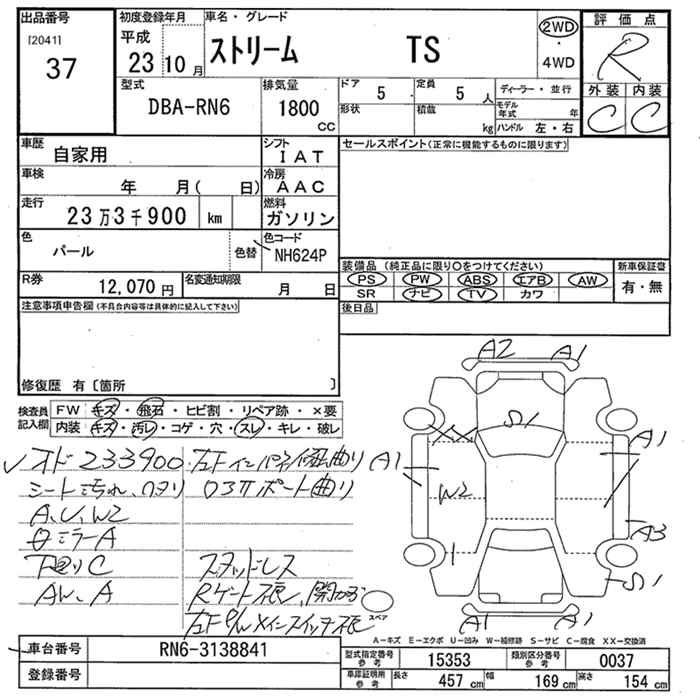 出品番号
[2041]
37
初度登録年月
平成
23 10 月
車名・グレード
ストリーム TS
2WD
・
4WD
評価点
R
外装 内装
C C
型式
DBA-RN6
排気量
1800
cc
ドア 5
形状
定員 5 人
積載 kg
ディーラー・並行
モデル年式 年
ハンドル 左・右
車歴
自家用
シフト
IAT
車検
年 月( 日)
冷房
AAC
走行
23万3千900 km
燃料
ガソリン
色
パール
色替
色コード
NH624P
R券
12,070 円
名変通知期限
月 日
セールスポイント(正常に機能するものに限ります)
装備品 (純正品に限り○をつけてください)
PS PW ABS エアB AW
SR ナビ TV カワ
新車保証書
有・無
後日品
注意事項申告欄 (不具合内容等は具体的に記入して下さい)
修復歴 有〔箇所 〕
検査員記入欄
FW キズ・飛石・ヒビ割・リペア跡・×要
内装 キズ・汚レ・コゲ・穴・スレ・キレ・破レ
オド 233900
左Fインパネ修正、曲り
シート汚れ、ワタリ
ロアサポート曲り
A、U、W2
ミラーA
下廻りC
スタッドレス
AW、A
Rゲート
A2 A1
S1
A1
A1
W2
A3
S1
A1 A1
スペア
A-キズ E-エクボ U-凹み W-補修跡 S-サビ C-腐食 XX-交換済
車台番号
RN6-3138841
登録番号
型式指定番号 参考
15353
類別区分番号 参考
0037
車庫証明用 参考
長さ 457 cm
幅 169 cm
高さ 154 cm